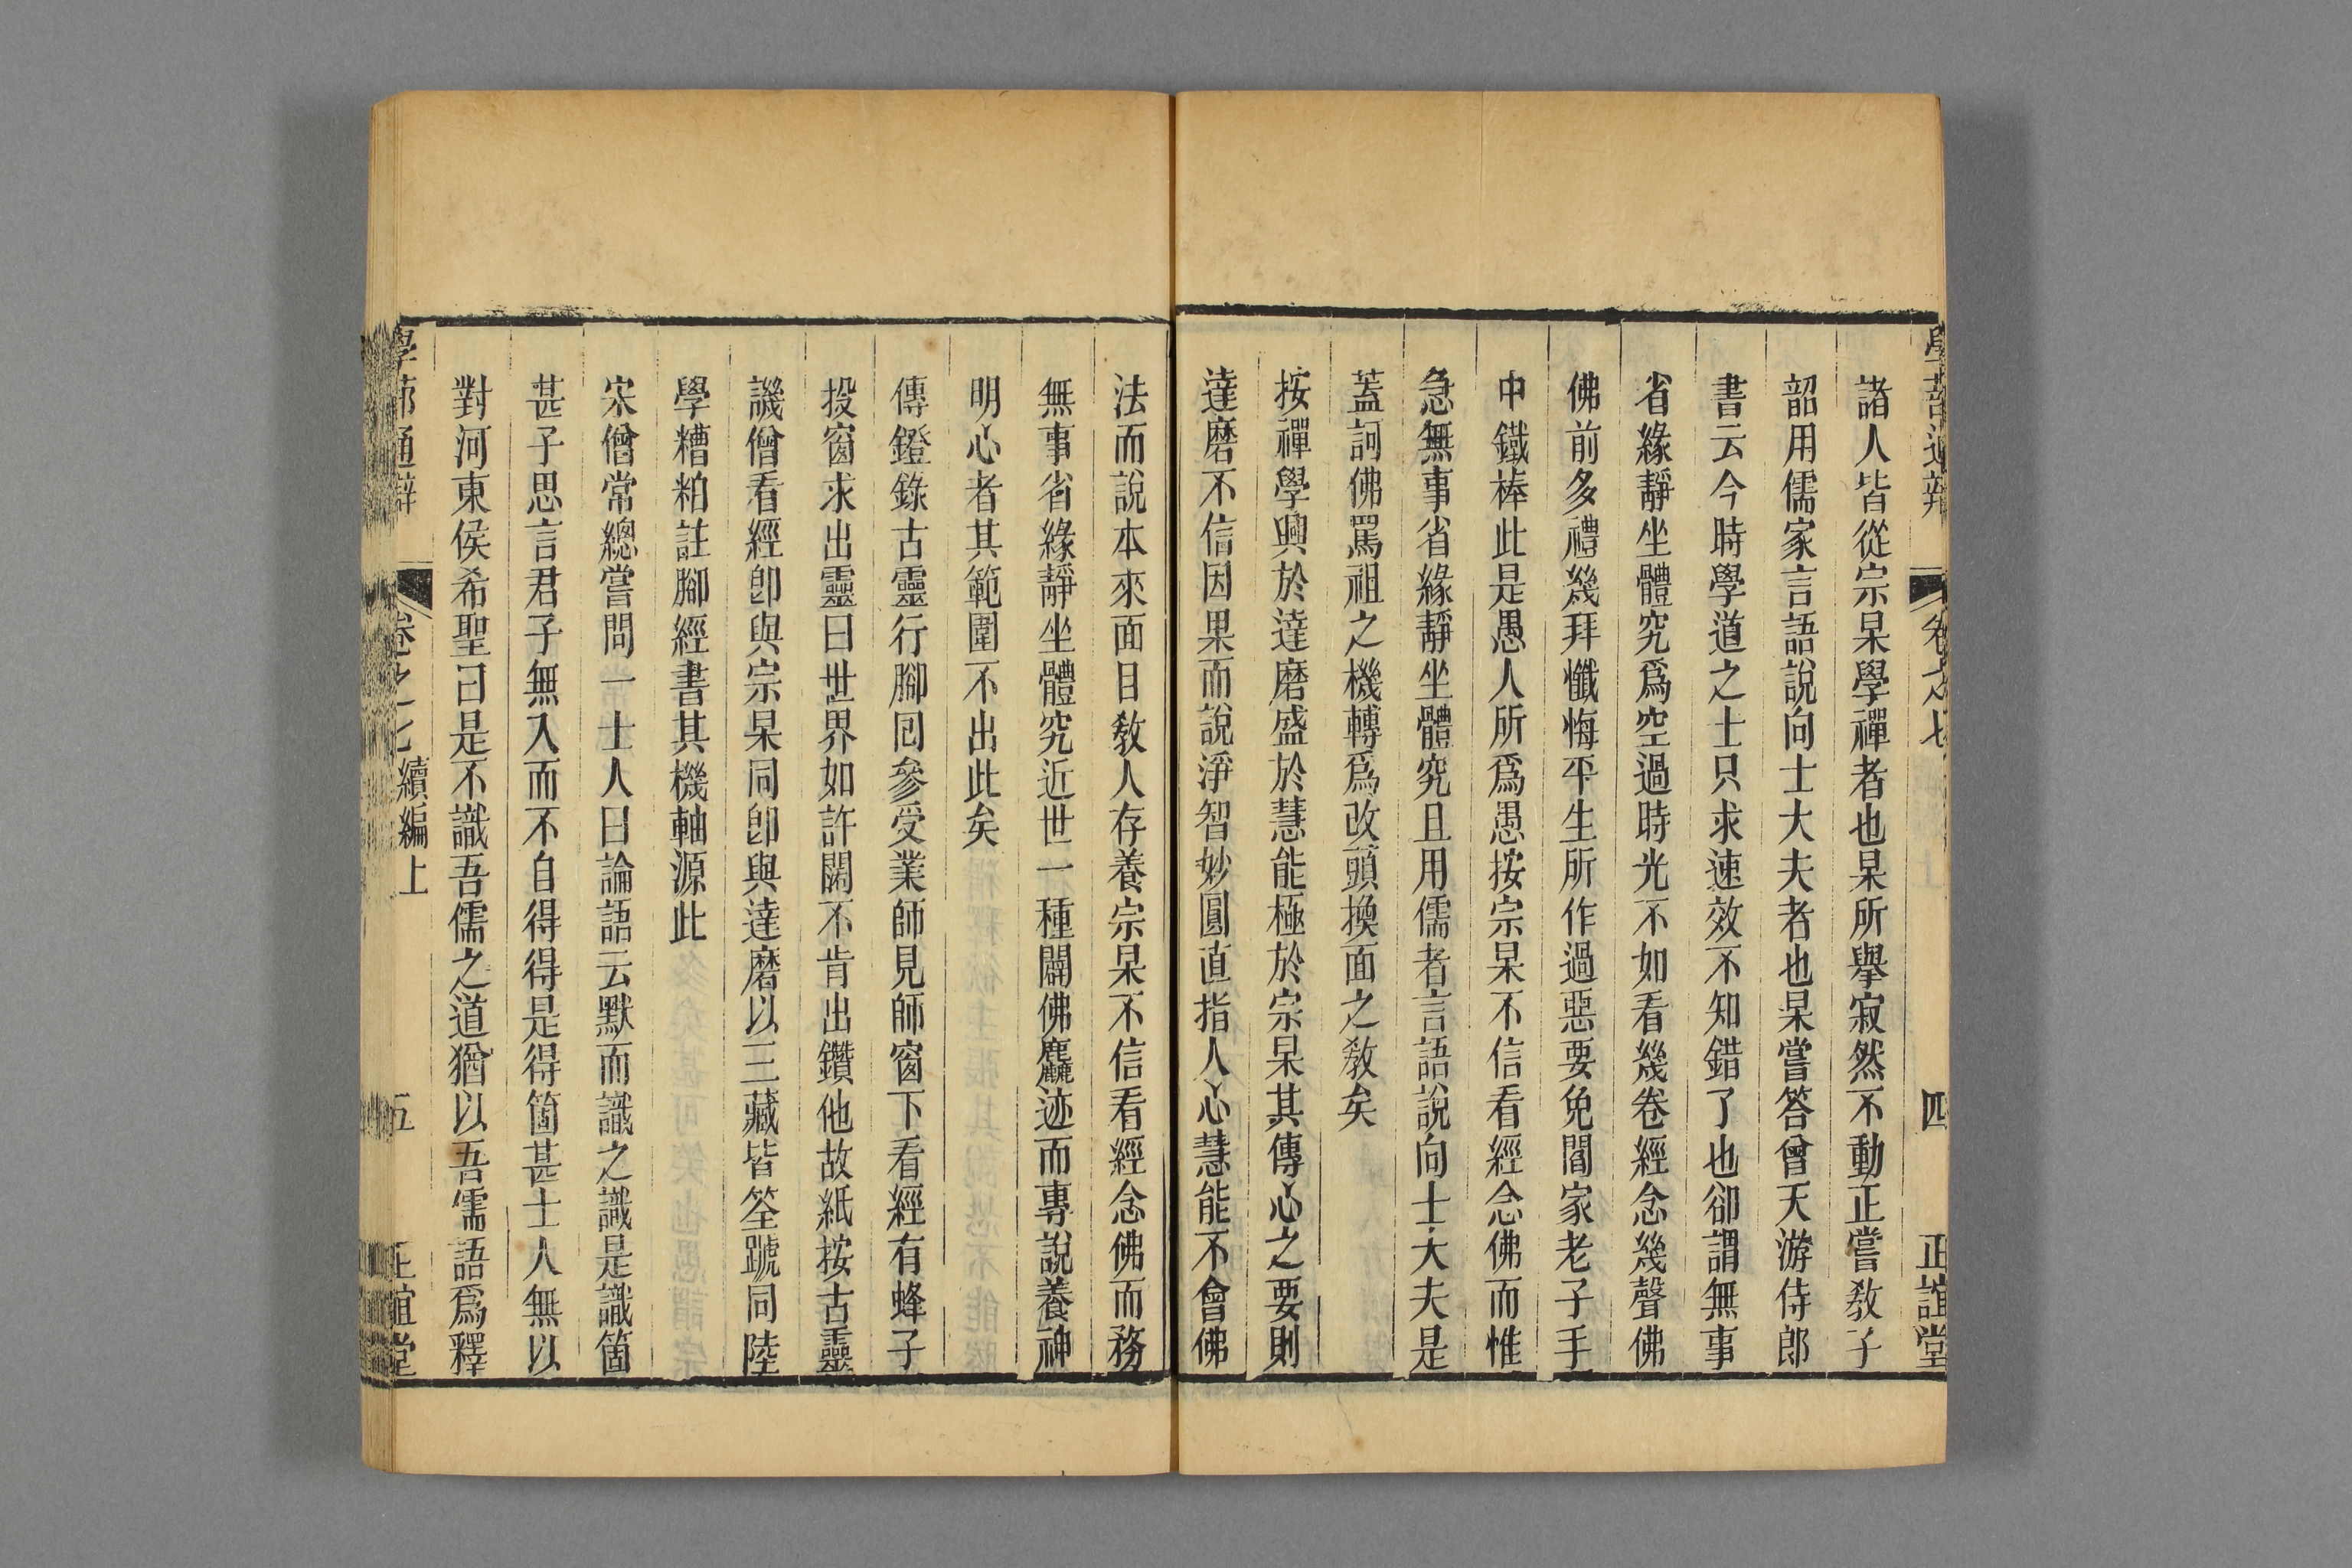 學蔀通辨 卷之七 四 正誼堂
諸人皆從宗杲學禪者也杲所舉寂然不動正嘗敎子
韶用儒家言語說向士大夫者也杲嘗答曾天游侍郎
書云今時學道之士只求速效不知錯了也卻謂無事
省緣靜坐體究爲空過時光不如看幾卷經念幾聲佛
佛前多禮幾拜懺悔平生所作過惡要免閻家老子手
中鐵棒此是愚人所爲愚按宗杲不信看經念佛而惟
急無事省緣靜坐體究且用儒者言語說向士大夫是
蓋訶佛罵祖之機轉爲改頭換面之敎矣
按禪學興於達磨盛於慧能極於宗杲其傳心之要則
達磨不信因果而說淨智妙圓直指人心慧能不會佛
法而說本來面目敎人存養宗杲不信看經念佛而務
無事省緣靜坐體究近世一種闢佛麤迹而專說養神
明心者其範圍不出此矣
傳鐙錄古靈行腳囘參受業師見師窗下看經有蜂子
投窗求出靈曰世界如許闊不肯出鑽他故紙按古靈
譏僧看經卽與宗杲同卽與達磨以三藏皆筌蹏同陸
學糟粕註腳經書其機軸源此
宋僧常總嘗問一士人曰論語云默而識之識是識箇
甚子思言君子無入而不自得得是得箇甚士人無以
對河東侯希聖曰是不識吾儒之道猶以吾儒語爲釋
學蔀通辨 卷之七 續編上 五 正誼堂